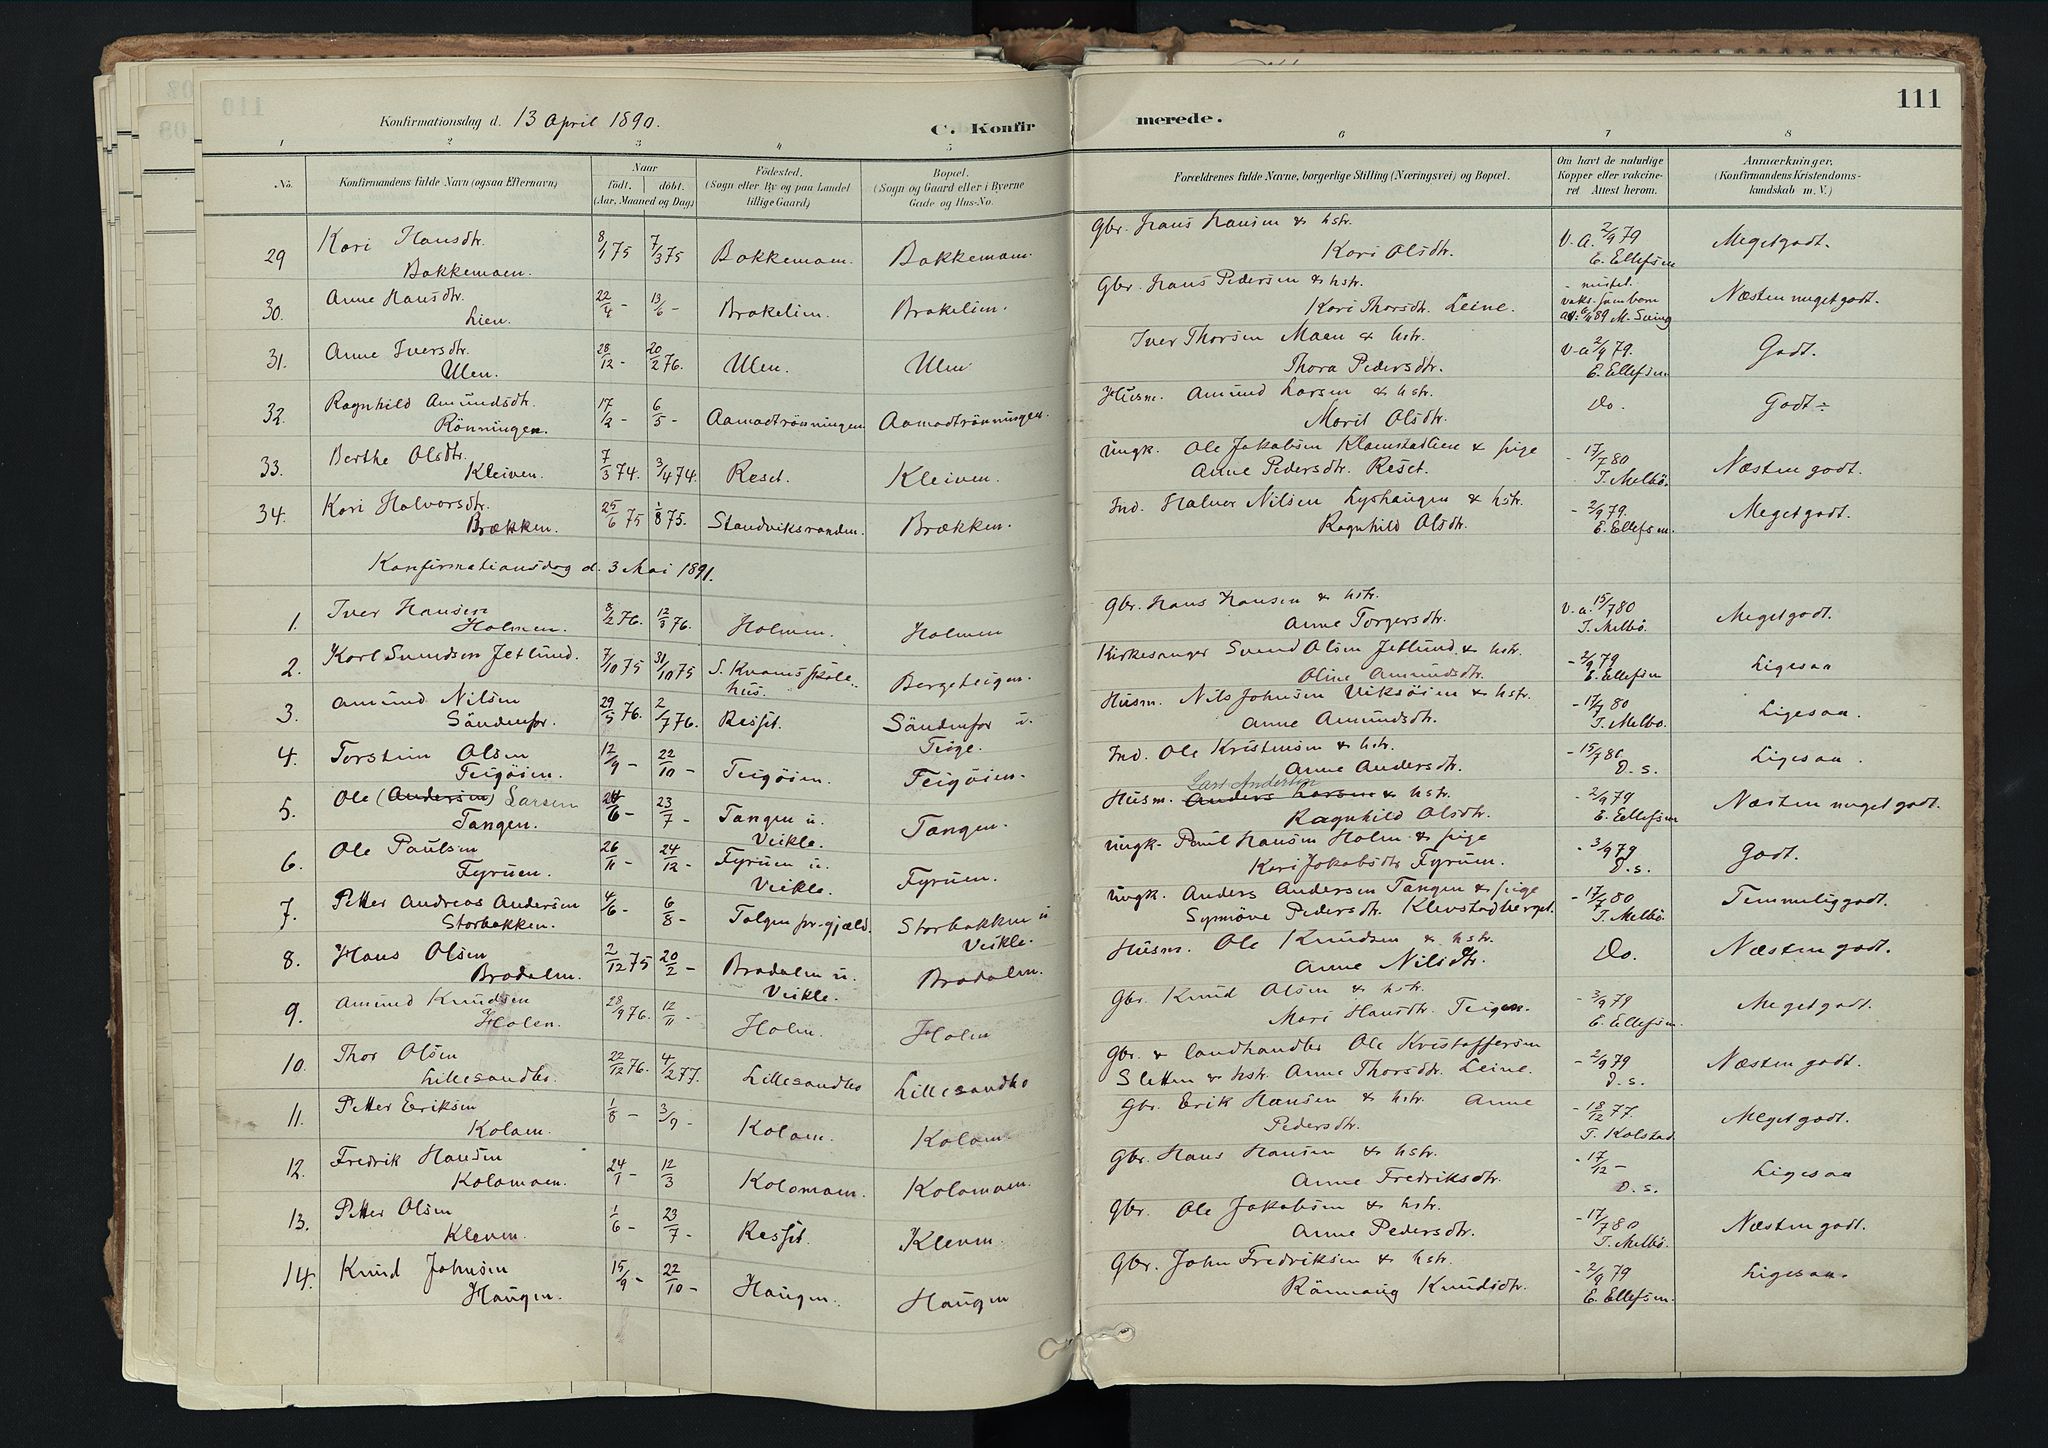 111
Konfirmationsdag d. 13 April 1890. C. Konfirmerede.
1 2 3 4 5 6 7 8
No.
Konfirmandens fulde Navn (ogsaa Efternavn)
Naar
födt. döbt.
(Aar, Maaned og Dag)
Födested.
(Sogn eller By og paa Landet
tillige Gaard)
Bopæl.
(Sogn og Gaard eller i Byerne
Gade og Hus-No.
Forældrenes fulde Navne, borgerlige Stilling (Næringsvei) og Bopæl.
Om havt de naturlige
Kopper eller vakcine-
ret Attest herom.
Anmærkninger.
(Konfirmandens Kristendoms-
kundskab m. V.)
29 Kari Hansdtr. Bakkemoen. 8/1 75 7/3 75 Bakkemoen. Bakkemoen. Gbr. Hans Hansen & hstr. Kari Olsdtr. V. A. 2/9 79 E. Ellefsen Meget godt.
30. Anne Hansdtr. Lien. 22/4 - 13/6 - Brakelien. Brakelien. Gbr. Hans Pedersen & hstr. Kari Thorsdtr. Leine. - mistet. vaks. 89 M. Næsten meget godt.
31. Anne Iversdtr. Ulen. 28/12 - 20/2 76. Ulen. Ulen. Iver Thorsen Moen & hstr. Thora Pedersdtr. V-a 2/9 79. E. Ellefsen Godt.
32. Ragnhild Amundsdtr. Rönningen. 17/2 - 6/5 - Aamodtrönningen Aamodtrönningen. Husm. Amund Larsen & hstr. Marit Olsdtr. Do. Godt ÷
33. Berthe Olsdtr. Kleiven. 7/3 74. 3/4 74. Reset. Kleiven. Ungk. Ole Jakobsen Klamstadlien & pige Anne Pedersdtr. Reset. - 17/7 80 T. Melbö. Næsten godt.
34. Kari Halvorsdtr. Brækken. 25/6 75 1/8 75. Standviksranden. Brækken. Ind. Halvor Nilsen Lyshaugen & hstr. Ragnhild Olsdtr. - 2/9 79. E. Ellefsen. Meget godt.
Konfirmationsdag d. 3 Mai 1891.
1. Iver Hansen Holmen. 8/2 76. 12/3 76. Holmen. Holmen Gbr. Hans Hansen & hstr. Anne Torgersdtr. V. a. 15/7 80 T. Melbö. Meget godt.
2. Karl Svendsen Jetlund. 7/10 75 31/10 75 S. Kvams skole-hus. Bergeteigen. Kirkesanger Svend Olsen Jetlund & hstr. Oline Amundsdtr. - 2/9 79 E. Ellefsen Ligesaa
3. Amund Nilsen Söndenfor. 29/5 76. 2/7 76. Resset. Söndenfor u. Teige. Husm. Nils Johnsen Viksöien & hstr. Anne Amundsdtr. - 17/7 80 T. Melbo. Ligesaa.
4. Torstein Olsen Teigöien. 12/9 - 22/10 - Teigöien. Teigöien. Ind. Ole Kristensen & hstr. Anne Andersdtr. - 15/7 80 D. s. Ligesaa.
5. Ole (Andersen) Larsen Tangen. 24/6 - 23/7 - Tangen u. Veikle. Tangen. Husm. Anders Larsen Lars Andersen & hstr. Ragnhild Olsdtr. - 2/9 79 E. Ellefsen Næsten meget godt.
6. Ole Paulsen Fyruen. 26/11 - 24/12 - Fyruen u. Veikle. Fyruen. Ungk. Paul Hansen Holm & pige Kari Jakobsdtr Fyruen. - 3/9 79 D. s. Godt.
7. Petter Andreas Andersen Storbakken. 4/6 - 6/8 - Tolgen pr.gjæld. Storbakken u Veikle. Ungk. Anders Andersen Tangen & pige Synnöve Pedersdtr. Klevstadberget. - 17/7 80 T. Melbö. Temmelig godt.
8. Hans Olsen Bradalen. 2/12 75 20/2 - Bradalen u. Veikle. Bradalen. Husm. Ole Knudsen & hstr. Anne Nilsdtr. Do. Næsten godt.
9. Amund Knudsen Holen. 28/9 76. 12/11 - Holen. Holen Gbr. Knud Olsen & hstr. Mari Hansdtr. Teigen. - 3/9 79 E. Ellefsen. Meget godt.
10. Thor Olsen Lillesandbo. 22/12 76. 4/2 77. Lillesandbo Lillesandbo Gbr. & landhandler Ole Kristoffersen Sletten & hstr. Anne Thorsdtr. Leine. - 2/9 79 D. s. Næsten godt.
11. Petter Eriksen Koloen. 1/8 - 3/9 - Koloen. Koloen Gbr. Erik Hansen & hstr. Anne Pedersdtr. - 18/12 77. T. Kolstad. Meget godt.
12. Fredrik Hansen Kolomoen. 24/1 - 12/3 Kolomoen. Kolomoen. Gbr. Hans Hansen & hstr. Anne Fredriksdtr. - 17/12 - D. s. Ligesaa
13. Petter Olsen Kleven. 1/6 - 23/7 - Resset. Kleven. Gbr. Ole Jakobsen & hstr. Anne Pedersdtr. - 17/7 80 T. Melbö. Næsten godt.
14. Knud Johnsen Haugen. 15/9 - 22/10 - Haugen. Haugen Gbr. John Fredriksen & hstr. Rönnaug Knudsdtr. - 2/9 79 E. Ellefsen. Ligesaa.